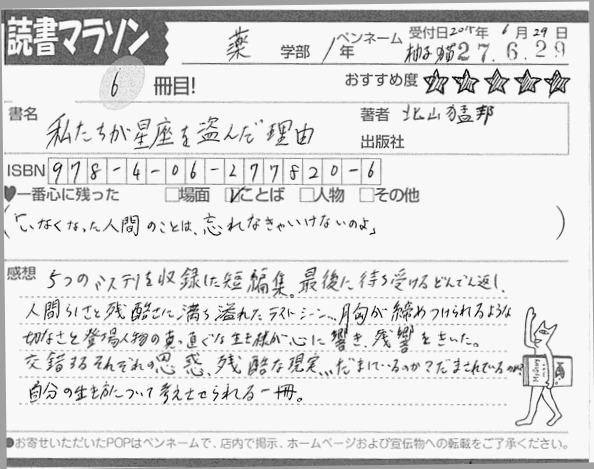 読書マラソン
薬 学部 / 年 ペンネーム 柚子猫 受付日2015年6月29日
27.6.29
6 冊目! おすすめ度 ★★★★★
書名 私たちが星座を盗んだ理由 著者 北山猛邦
出版社
ISBN 978-4-06-277820-6
♥一番心に残った □場面 ☑ことば □人物 □その他
(「いなくなった人間のことは、忘れなきゃいけないのよ」)
感想 5つのミステリを収録した短編集。最後に待ち受けるどんでん返し、
人間らしさと残酷さに満ち溢れたラストシーン…胸が締めつけられるような
切なさと登場人物の真っ直ぐな生き様が心に響き、残響をきいた。
交錯するそれぞれの思惑、残酷な現実…だましているのか?だまされているのか?
自分の生き方について考えさせられる一冊。
●お寄せいただいたPOPはペンネームで、店内で掲示、ホームページおよび宣伝物への転載をご了承ください。